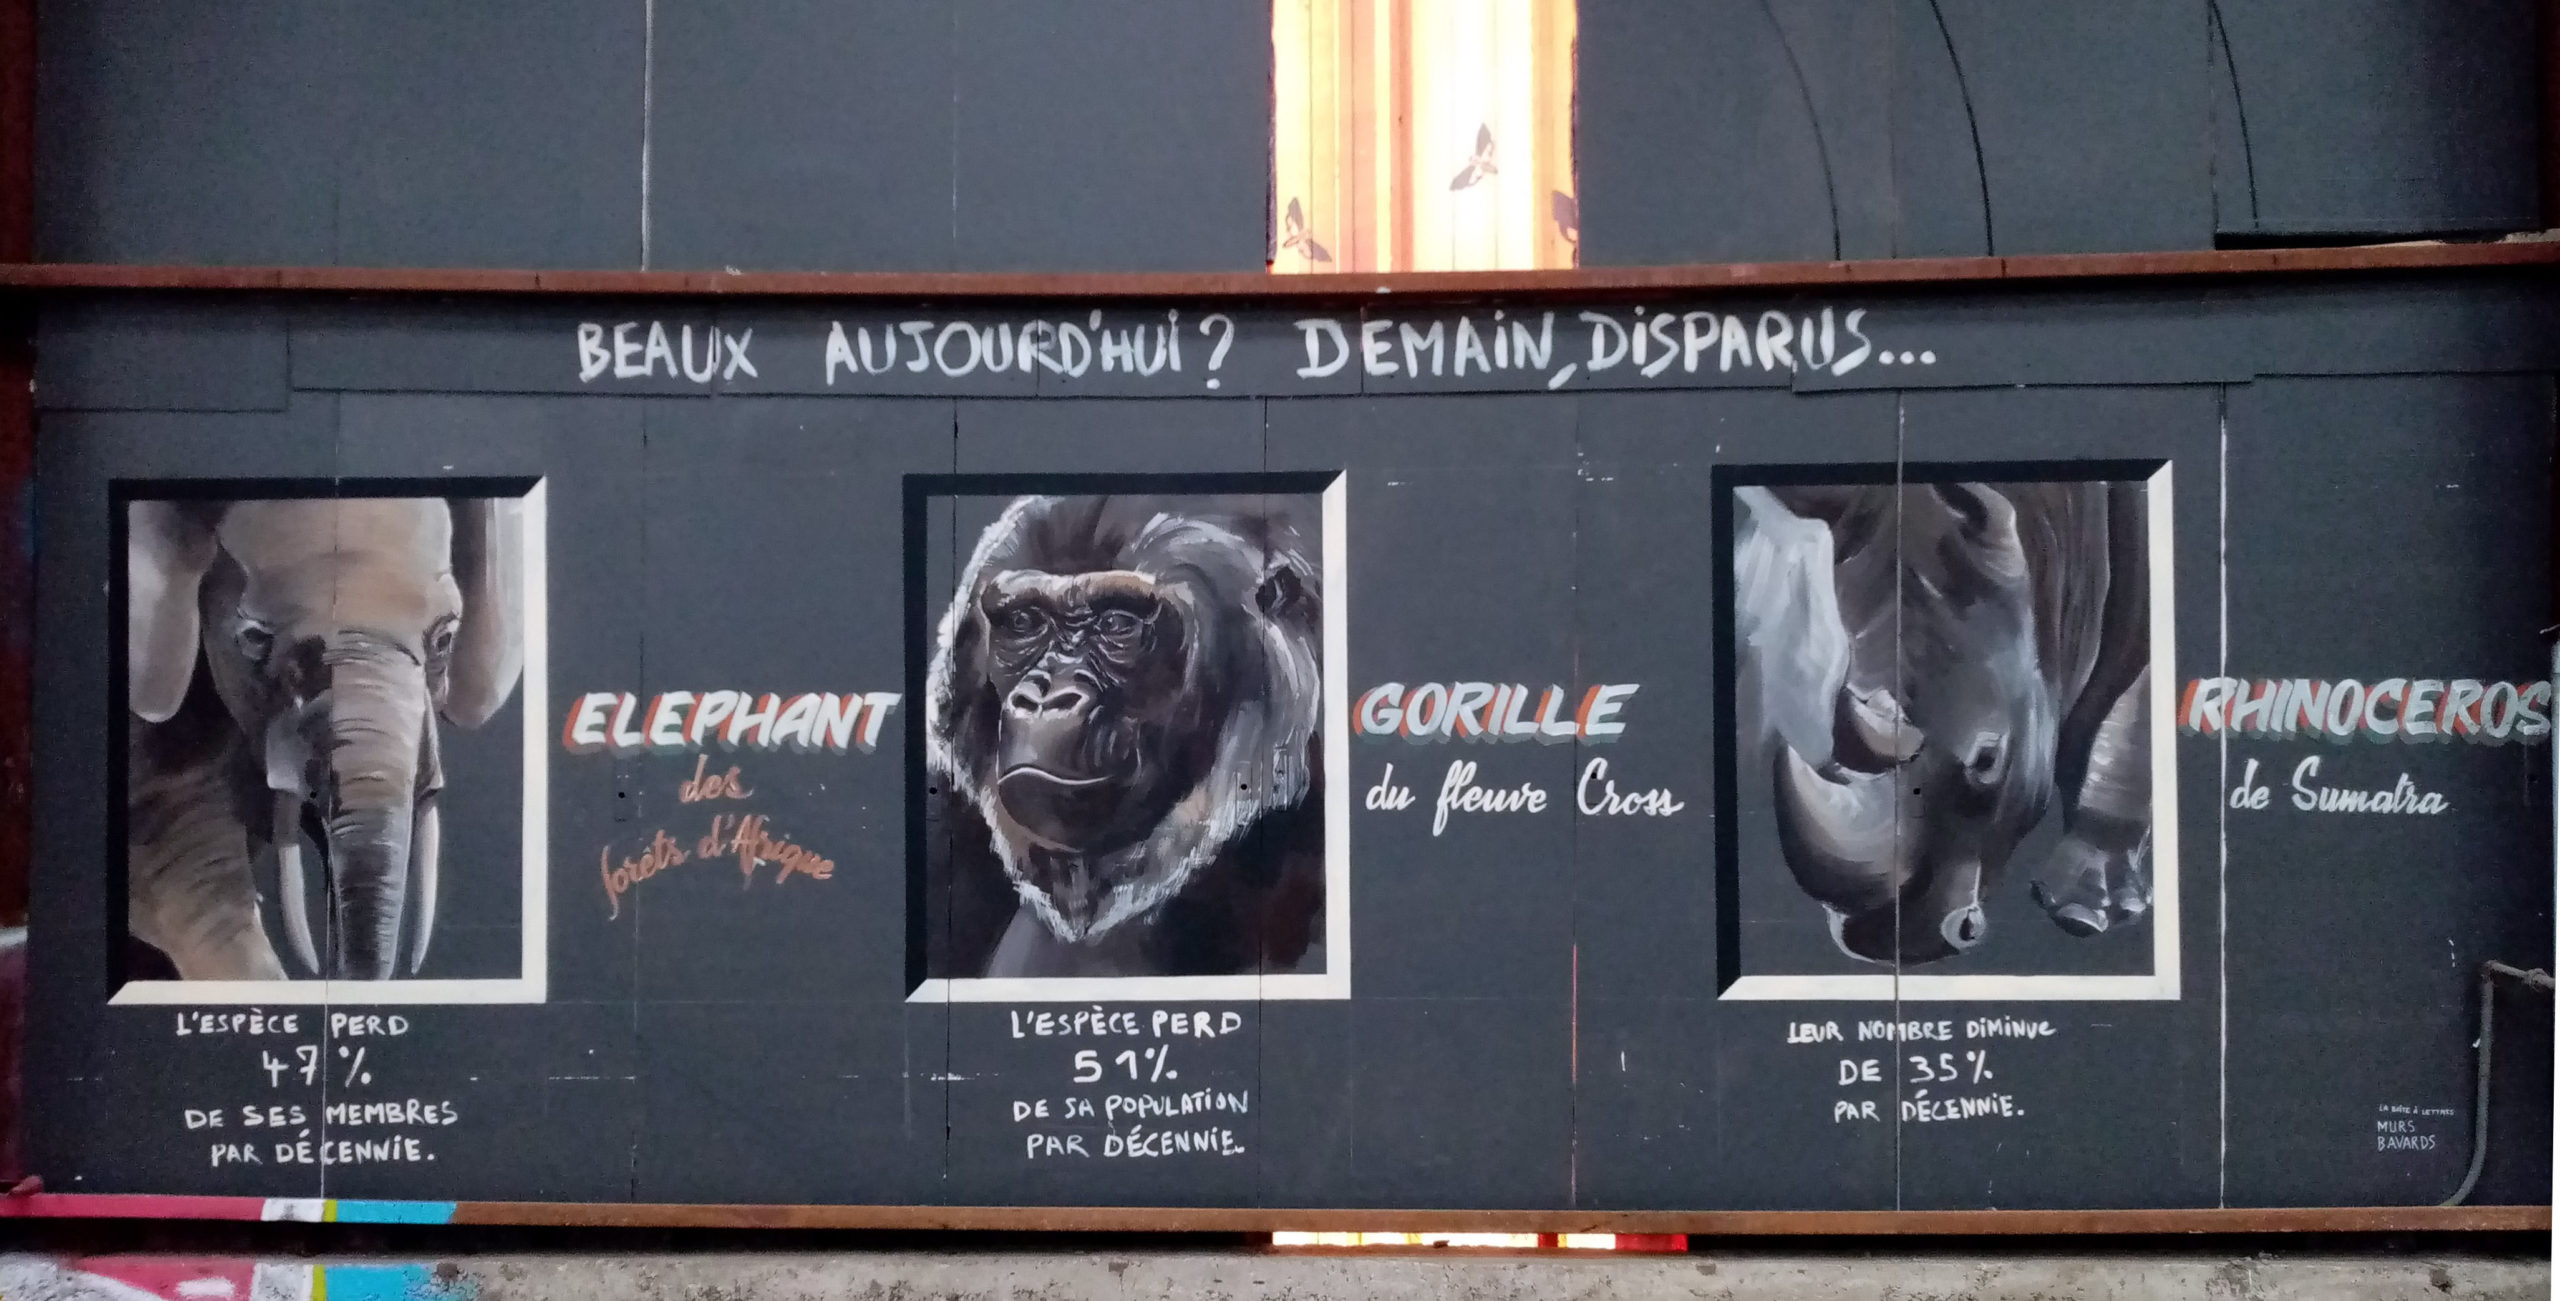 BEAUX AUJOURD'HUI? DEMAIN, DISPARUS...
ELEPHANT
des
forêts d'Afrique
L'ESPÈCE PERD
47%
DE SES MEMBRES
PAR DÉCENNIE.
GORILLE
du fleuve Cross
L'ESPÈCE PERD
51%
DE SA POPULATION
PAR DÉCENNIE.
RHINOCEROS
de Sumatra
LEUR NOMBRE DIMINUE
DE 35%
PAR DÉCENNIE.
LA BOÎTE À LETTRES
MURS
BAVARDS